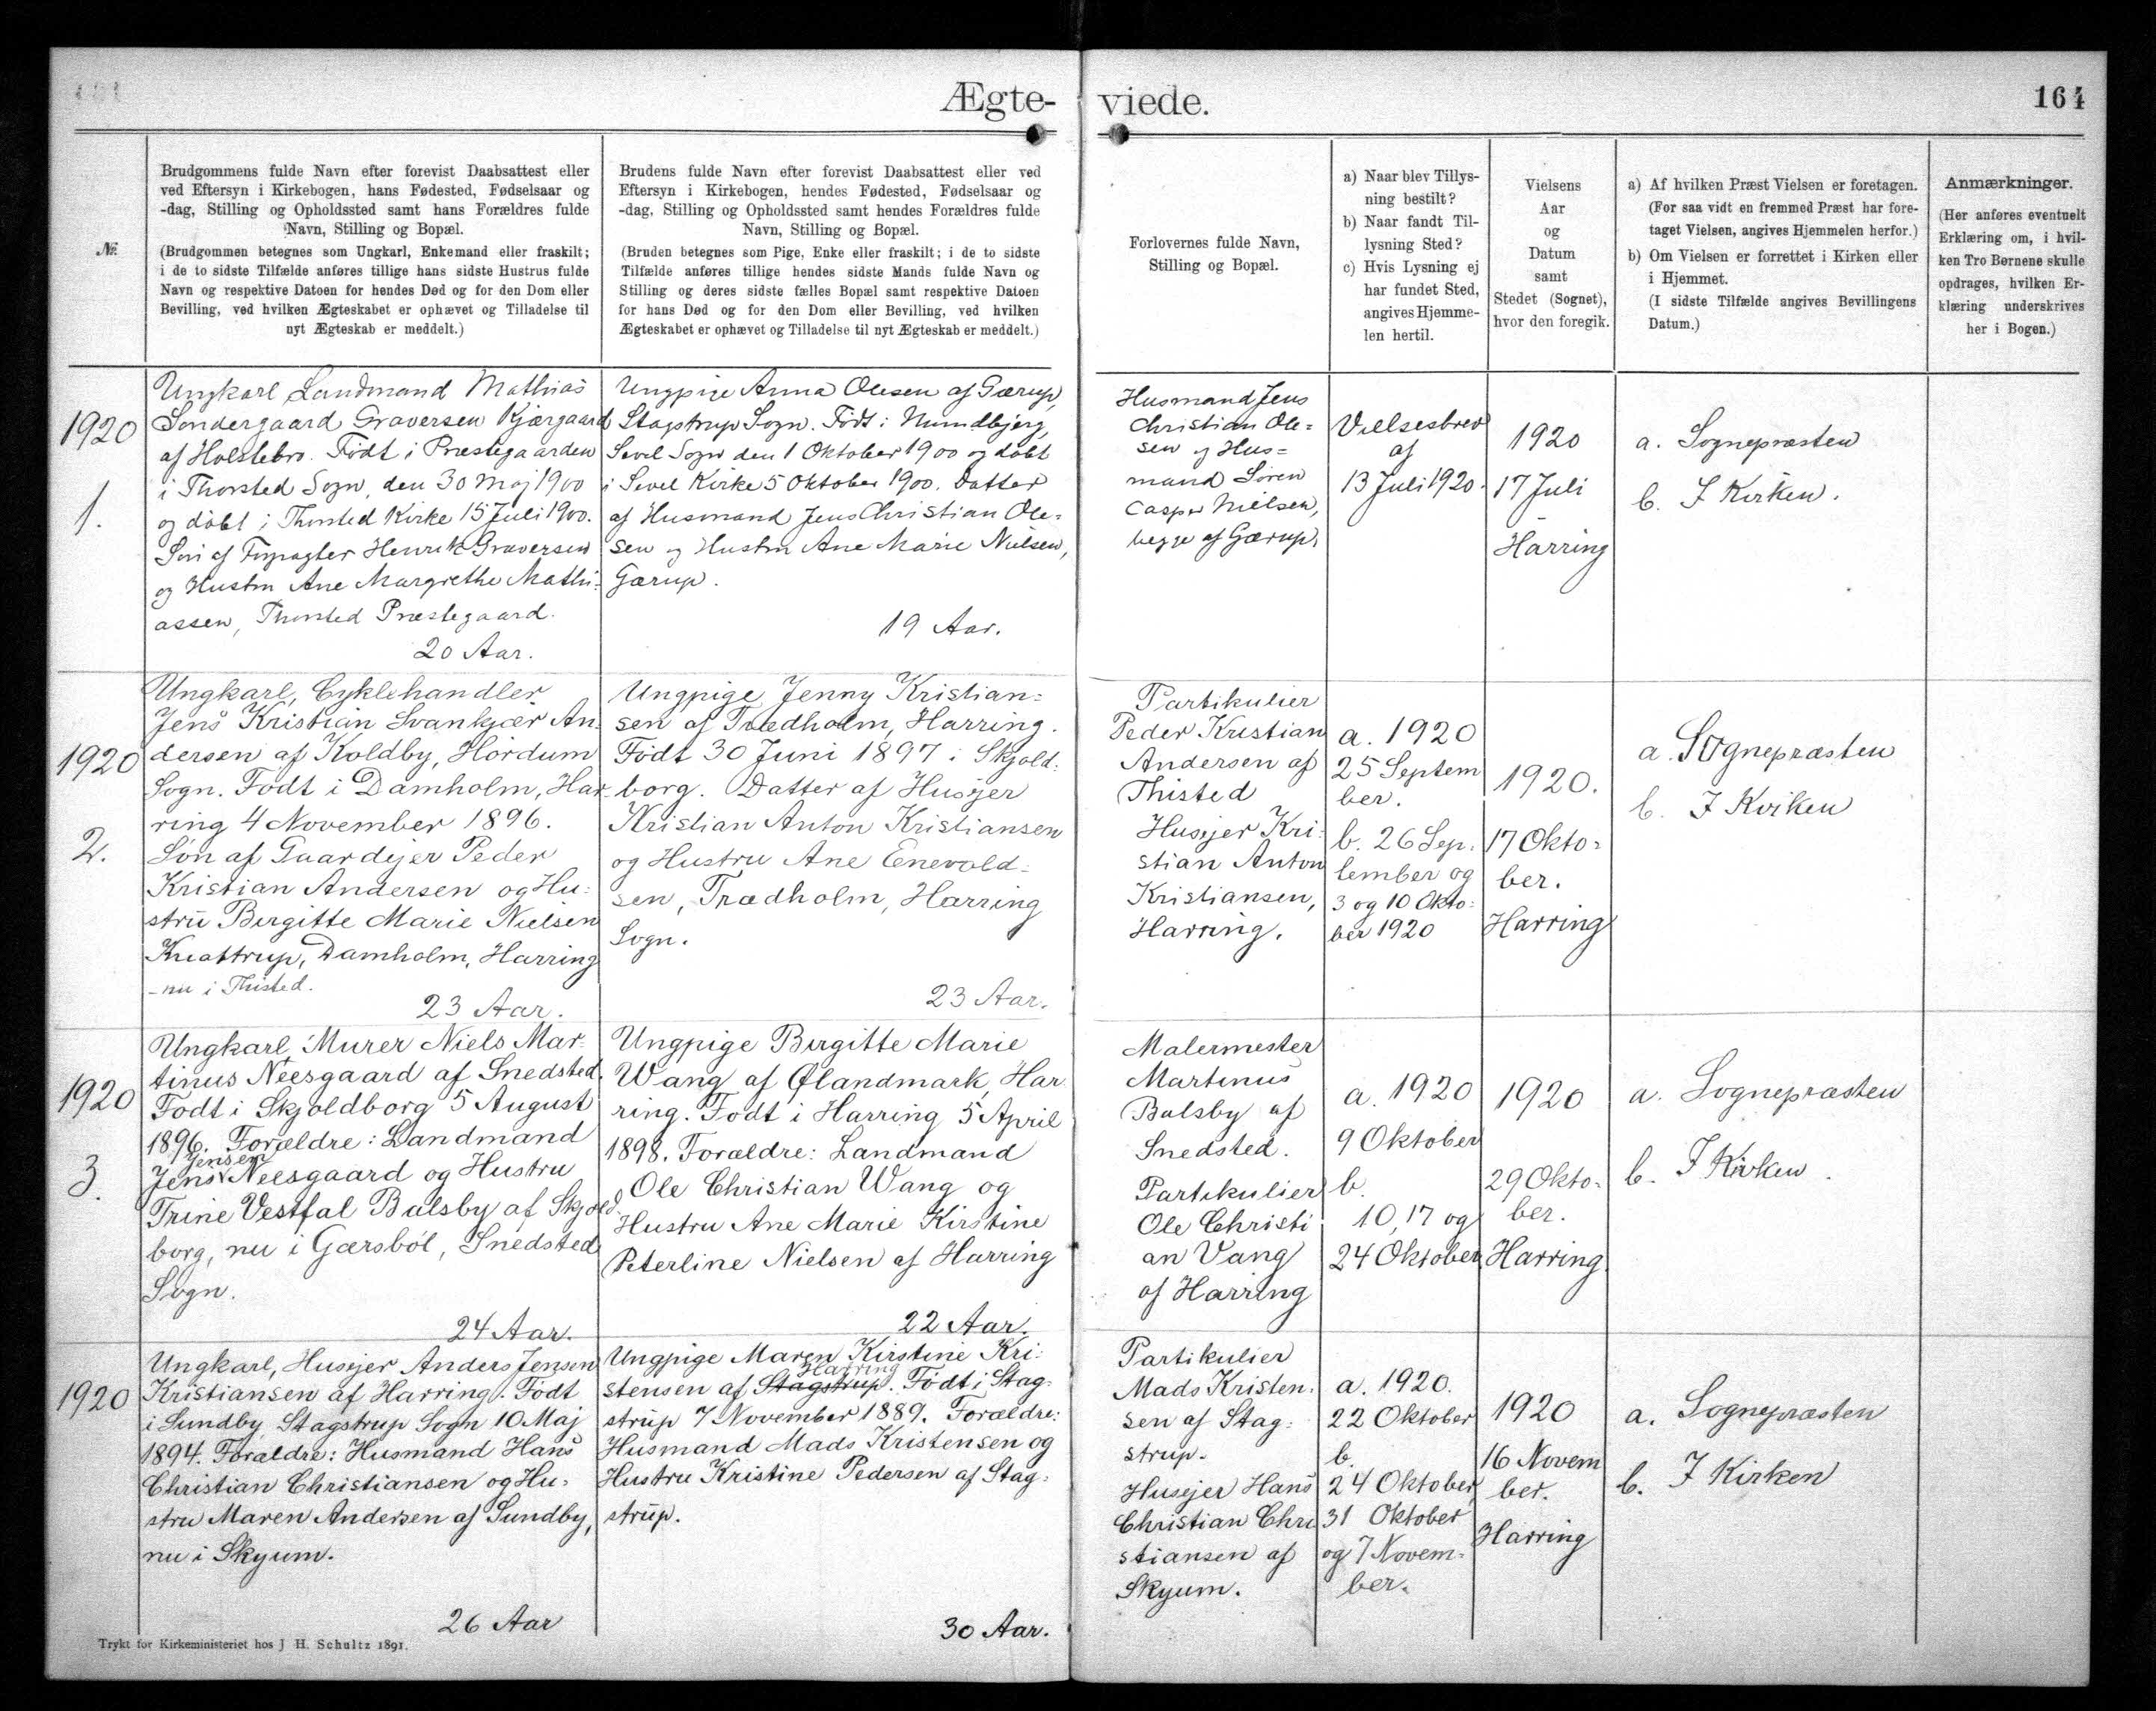 Ægte-
viede.
164
№
Brudgommens fulde Navn efter forevist Daabsattest eller
ved Eftersyn i Kirkebogen, hans Fødested, Fødselsaar og
-dag, Stilling og Opholdssted samt hans Forældres fulde
Navn, Stilling og Bopæl.
(Brudgommen betegnes som Ungkarl, Enkemand eller fraskilt;
i de to sidste Tilfælde anføres tillige hans sidste Hustrus fulde
Navn og respektive Datoen for hendes Død og for den Dom eller
Bevilling, ved hvilken Ægteskabet er ophævet og Tilladelse til
nyt Ægteskab er meddelt.)
Brudens fulde Navn efter forevist Daabsattest eller ved
Eftersyn i Kirkebogen, hendes Fødested, Fødselsaar og
-dag, Stilling og Opholdssted samt hendes Forældres fulde
Navn, Stilling og Bopæl.
(Bruden betegnes som Pige, Enke eller fraskilt; i de to sidste
Tilfælde anføres tillige hendes sidste Mands fulde Navn og
Stilling og deres sidste fælles Bopæl samt respektive Datoen
for hans Død og for den Dom eller Bevilling, ved hvilken
Ægteskabet er ophævet og Tilladelse til nyt Ægteskab er meddelt.)
Forlovernes fulde Navn,
Stilling og Bopæl.
a) Naar blev Tillys-
ning bestilt?
b) Naar fandt Til-
lysning Sted?
c) Hvis Lysning ej
har fundet Sted,
angives Hjemme-
len hertil.
Vielsens
Aar
og
Datum
samt
Stedet (Sognet),
hvor den foregik.
a) Af hvilken Præst Vielsen er foretagen.
(For saa vidt en fremmed Præst har fore-
taget Vielsen, angives Hjemmelen herfor.)
b) Om Vielsen er forrettet i Kirken eller
i Hjemmet.
(I sidste Tilfælde angives Bevillingens
Datum.)
Anmærkninger.
(Her anføres eventuelt
Erklæring om, i hvil-
ken Tro Børnene skulle
opdrages, hvilken Er-
klæring underskrives
her i Bogen.)
1920
1.
Ungkarl Landmand Mathias
Søndergaard Graversen Kjærgaard
af Holstebro. Født i Præstegaarden
i Thorsted Sogn, den 30 Maj 1900
og døbt i Thorsted Kirke 15 Juli 1900.
Søn af Forpagter Henrik Graversen
og Hustru Ane Margrethe Mathi-
assen, Thorsted Præstegaard.
20 Aar.
Ungpige Anna Olesen af Gærup,
Stagstrup Sogn. Født i Mundbjerg,
Sevel Sogn den 1 Oktober 1900 og døbt
i Sevel Kirke 5 Oktober 1900. Datter
af Husmand Jens Christian Ole=
sen og Hustru Ane Marie Nielsen,
Gærup.
19 Aar.
Husmand Jens
Christian Ole=
sen og Hus=
mand Søren
Casper Nielsen,
begge af Gærup.
Vielsesbrev
af
13 Juli 1920.
1920
17 Juli
Harring
a. Sognepræsten
b. I Kirken.
1920
2.
Ungkarl, Cyklehandler
Jens Kristian Svankjær An-
dersen af Koldby, Hørdum
Sogn. Født i Damholm, Har-
ring 4 November 1896.
Søn af Gaardejer Peder
Kristian Andersen og Hu=
stru Birgitte Marie Nielsen
Knattrup, Damholm, Harring
- nu i Thisted.
23 Aar.
Ungpige Jenny Kristian=
sen af Trædholm, Harring.
Født 30 Juni 1897 i Skjold=
borg. Datter af Husejer
Kristian Anton Kristiansen
og Hustru Ane Enevold=
sen, Trædholm, Harring
Sogn.
23 Aar.
Partikulier
Peder Kristian
Andersen af
Thisted
Husejer Kri=
stian Anton
Kristiansen,
Harring.
a. 1920
25 Septem
ber.
b. 26 Sep=
tember og
3 og 10 Okto=
ber 1920
1920.
17 Okto=
ber.
Harring
a. Sognepræsten
b. I Kirken
1920
3.
Ungkarl, Murer Niels Mar=
tinus Neesgaard af Snedsted.
Født i Skjoldborg 5 August
1896. Forældre: Landmand
Jensen
Jens Neesgaard og Hustru
Trine Vestfal Balsby af Skjold
borg, nu i Gærsbøl, Snedsted
Sogn.
24 Aar.
Ungpige Birgitte Marie
Wang af Ølandmark, Har
ring. Født i Harring 5 April
1898. Forældre: Landmand
Ole Christian Wang og
Hustru Ane Marie Kirstine
Peterline Nielsen af Harring
22 Aar.
Malermester
Martinus
Balsby af
Snedsted.
Partikulier
Ole Christi
an Vang
af Harring
a. 1920
9 Oktober
b.
10, 17 og
24 Oktober
1920
29 Okto=
ber.
Harring.
a. Sognepræsten
b. I Kirken.
1920
Ungkarl, Husejer Anders Jensen
Kristiansen af Harring. Født
i Sundby, Stagstrup Sogn 10 Maj
1894. Forældre: Husmand Hans
Christian Christiansen og Hu=
stru Maren Andersen af Sundby,
nu i Skyum.
26 Aar
Ungpige Maren Kirstine Kri=
Harring
stensen af Stagstrup. Født i Stag=
strup 7 November 1889. Forældre:
Husmand Mads Kristensen og
Hustru Kristine Pedersen af Stag=
strup.
30 Aar.
Partikulier
Mads Kristen=
sen af Stag=
strup.
Husejer Hans
Christian Chri
stiansen af
Skyum.
a. 1920.
22 Oktober
b.
24 Oktober,
31 Oktober
og 7 Novem=
ber.
1920
16 Novem
ber.
Harring
a. Sognepræsten
b. I Kirken
Trykt for Kirkeministeriet hos J. H. Schultz 1891.